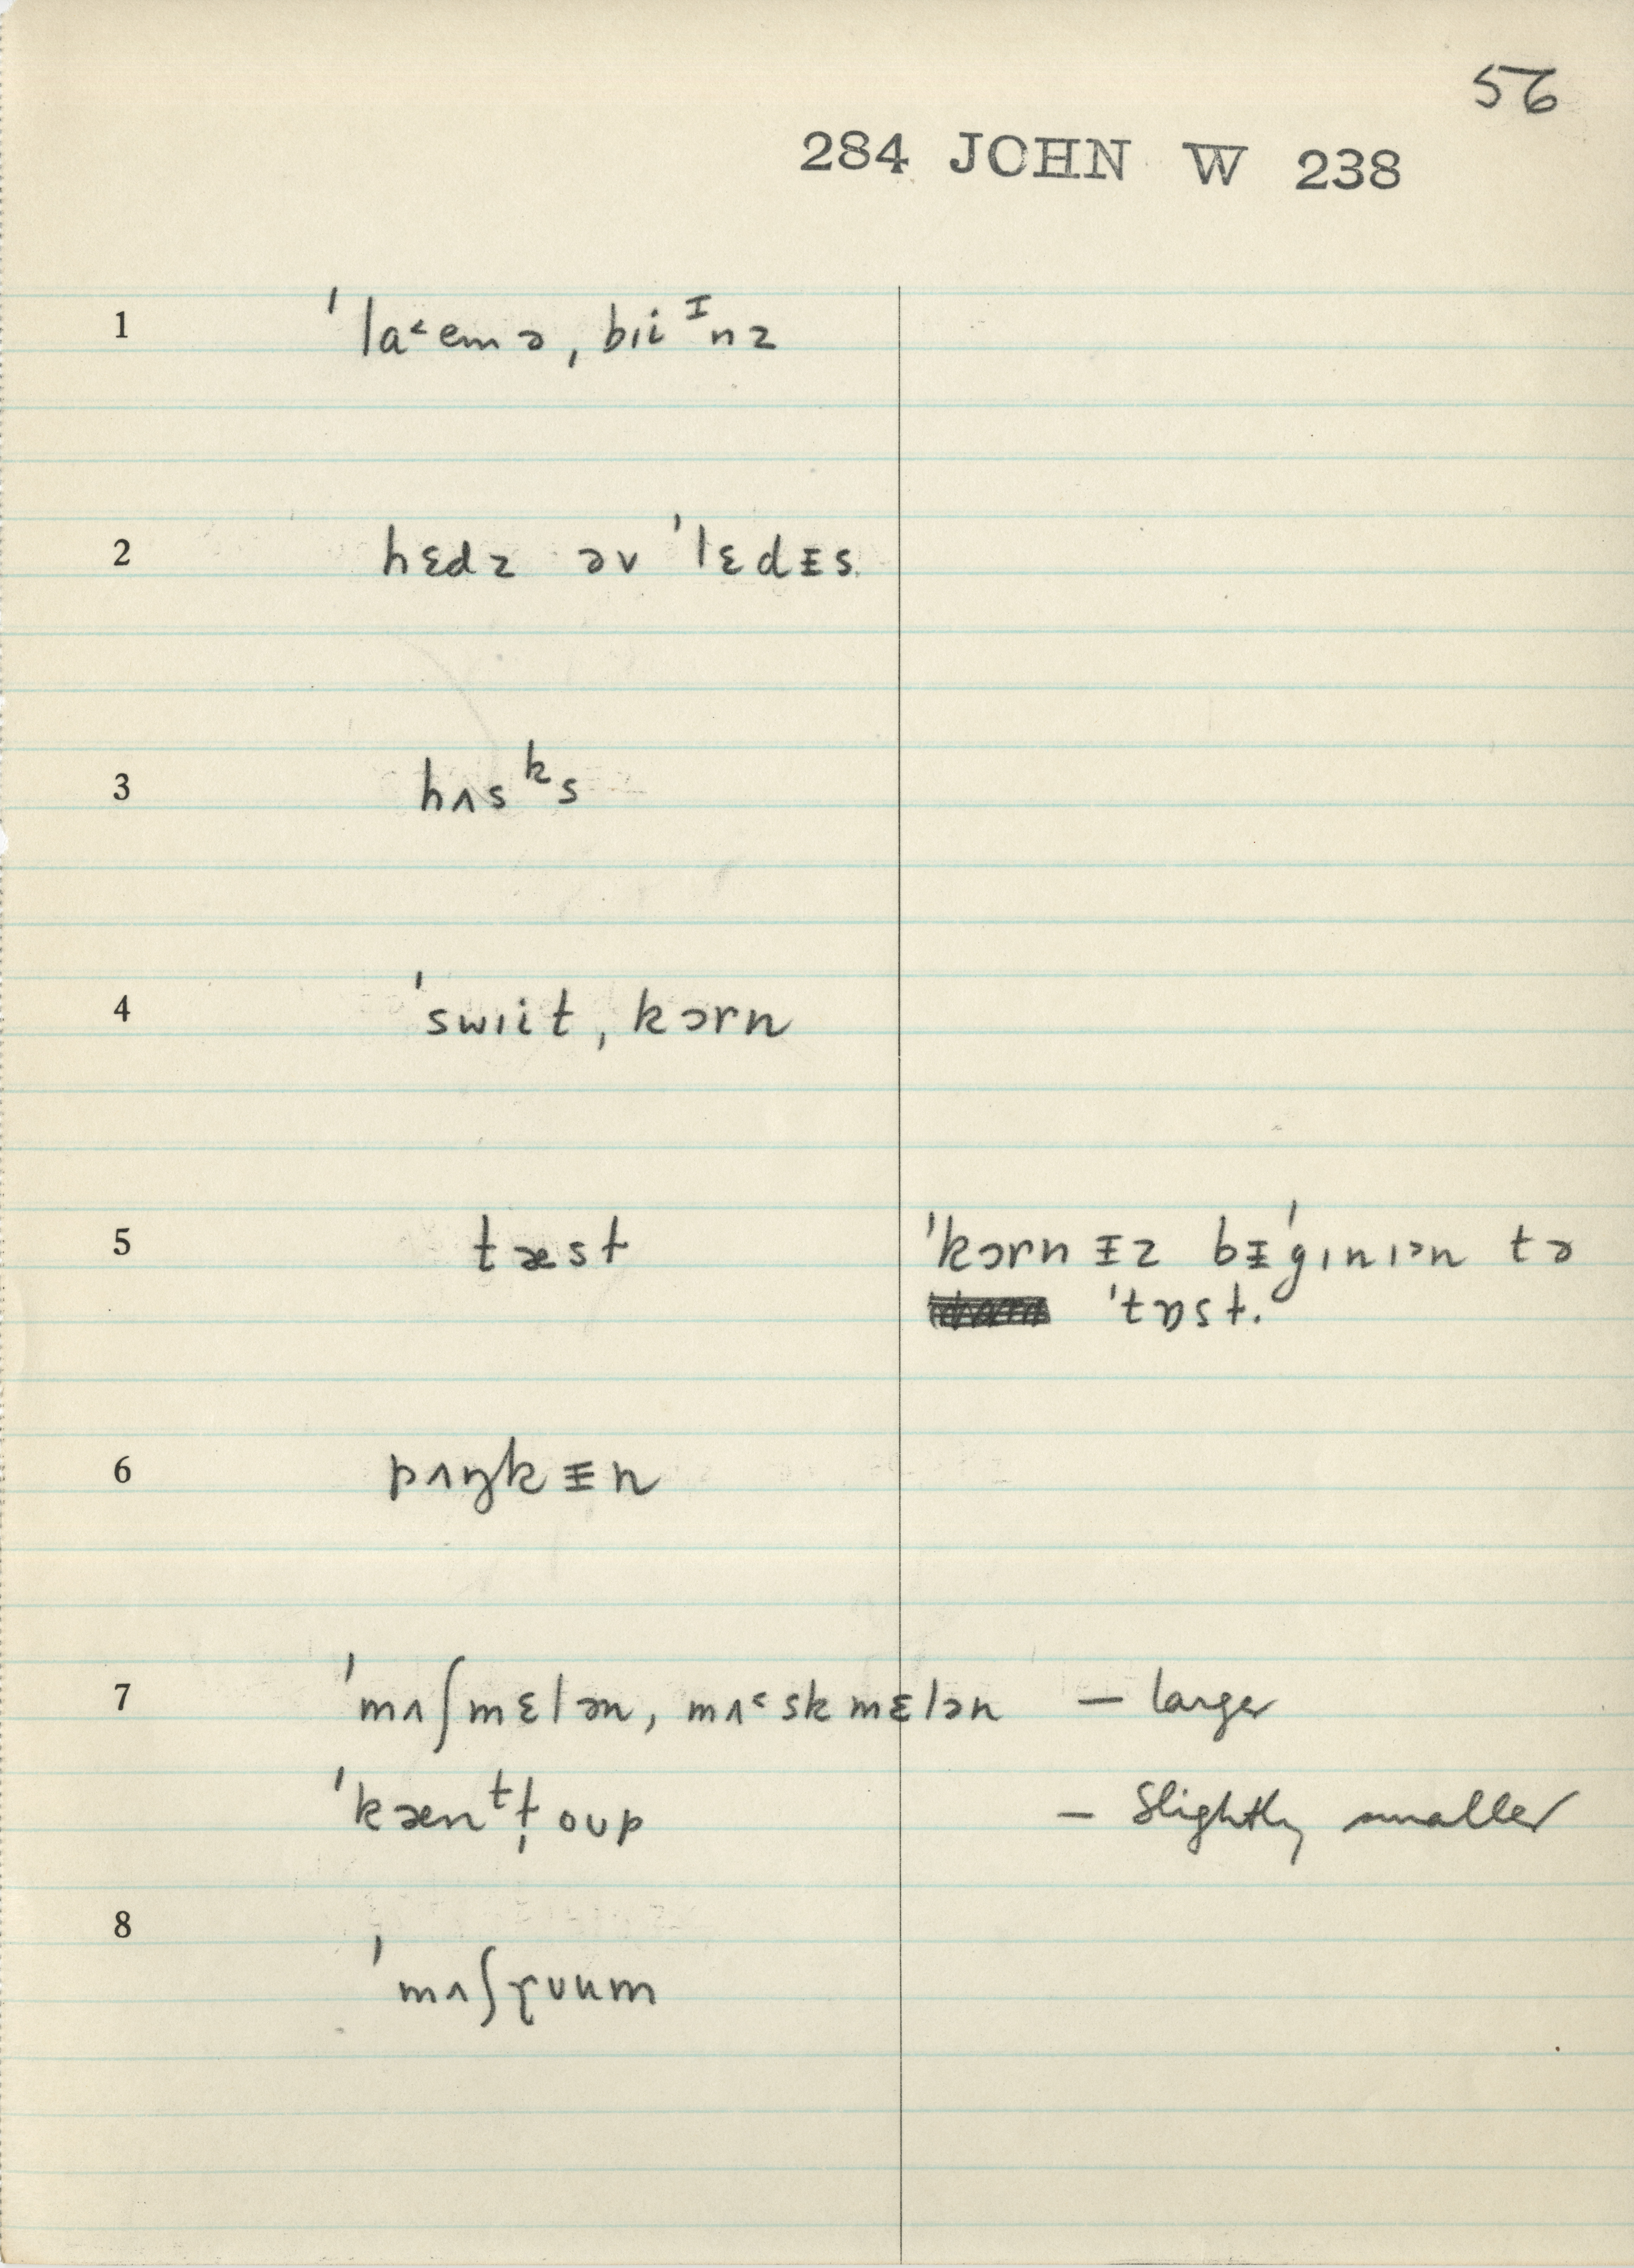 56
284 JOHN W 238
1 ˈla˂emə, bɪiᴵnz
2 hɛdz əv ˈlɛdᵻs
3 hʌsᵏs
4 ˈswɪit ˌkɔrn
5 tæst ˈkɔrn ᵻz bᵻˈgɪnɪən tə
ˈtɒst.
6 pʌŋkᵻn
7 ˈmʌʃmɛlən, mʌ˂skmɛlən — larger
ˈkænᵗt̩oʊp — Slightly smaller
8 ˈmʌʃɽʊum